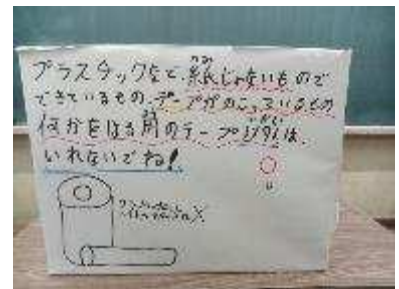 プラスチックなど、紙じゃないもので
できているもの、テープがのこっているもの
何かをはる前のテープ以外は、
いれないでね!